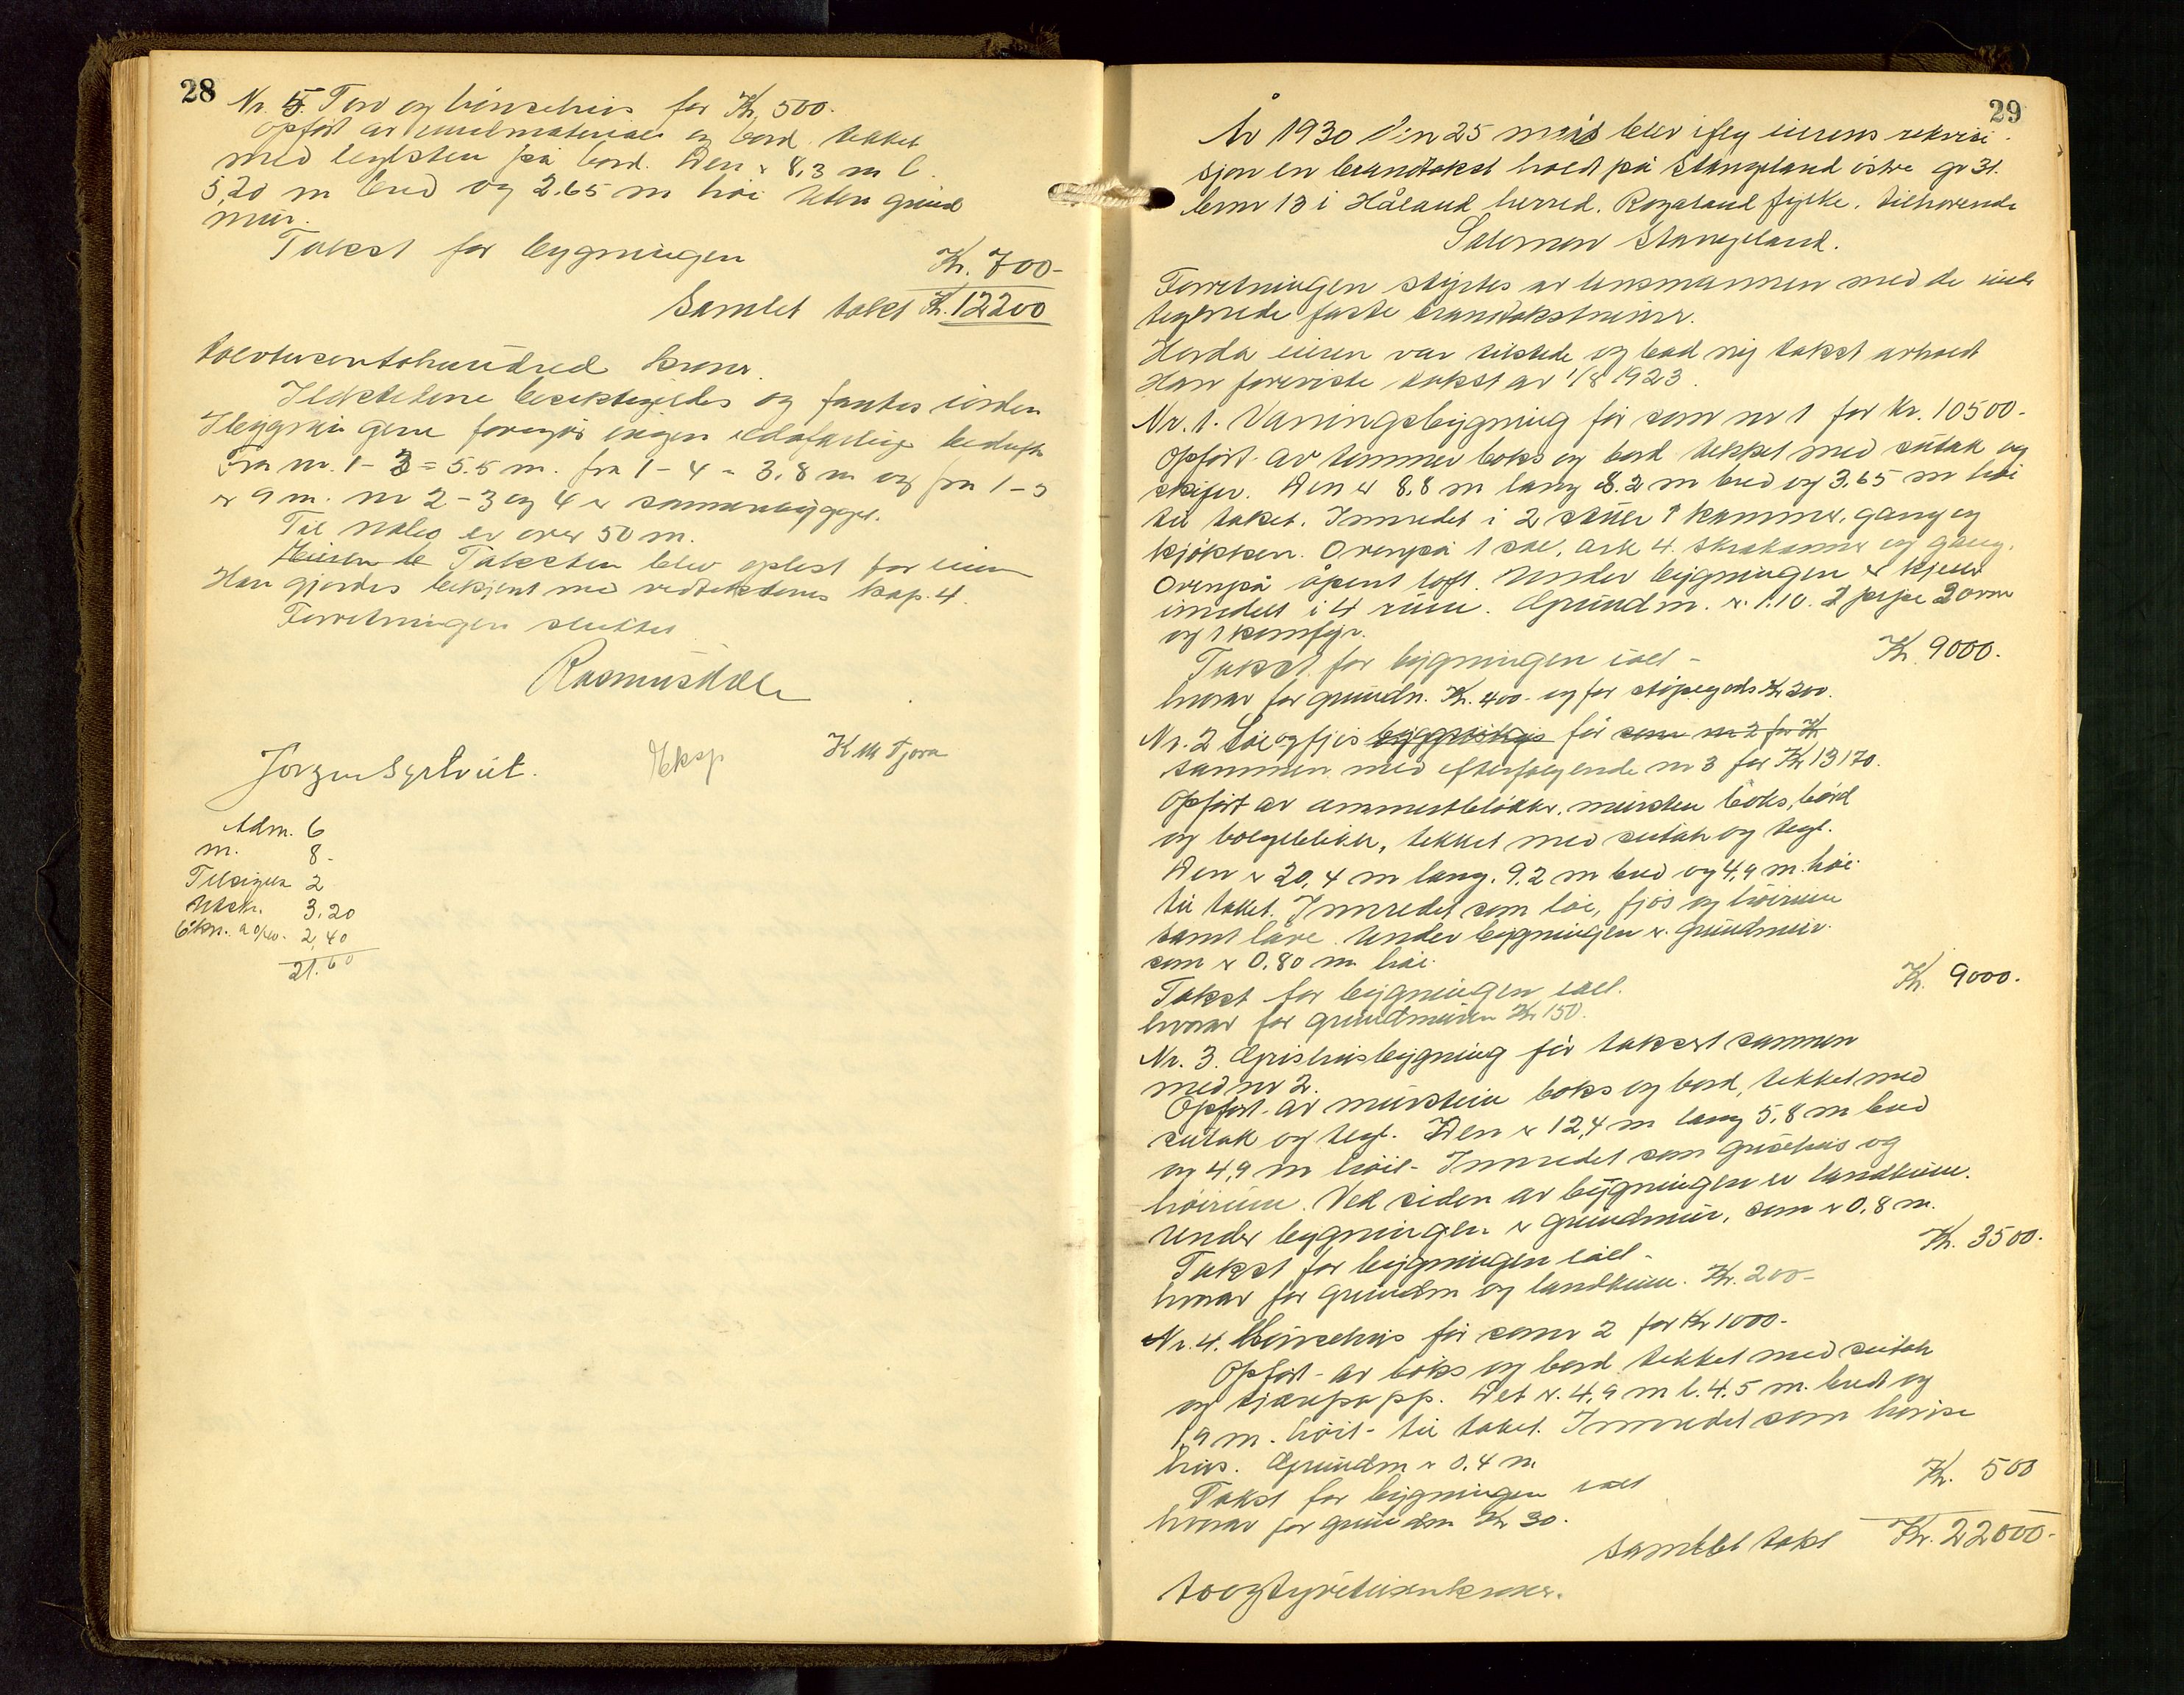 28
Nr. 5. Torv og hönsehus för Kr. 500.
Opfört av murmateriale og bord tekket
med teglsten på bord. Den er 8,3 m l.
5,20 m bred og 2.65 m höi uten grund
mur.
Takst for bygningen Kr. 700-
Samlet takst Kr. 12200
tolvtusentohundred kroner.
Ildstedene besiktigedes og fantes iorden
I bygningene foregår ingen ildsfarlig bedrift
Fra nr. 1-3 = 5.5 m. fra 1-4 = 3,8 m og fra 1-5
er 9 m. nr 2-3 og 4 er sammenbygget.
Til nabo er over 50 m.
Eieren le Taksten blev oplest for eieren
Han gjordes bekjent med vedtektenes kap. 4.
Forretningen sluttet
Rasmus
Jörgen K M Tjora
Adm. 6
m. 8-
Tilsigelse 2
Utskr. 3,20
6 km. a 0/40. 2,40
21.60
29
År 1930 den 25 mars blev ifлg eierens rekvisi-
sjon en branntakst holdt på Stangeland östre gr 31.
brnr 13 i Håland herred. Rogaland fylke. tilhörende
Salomon Stangeland.
Forretningen styrtes av lensmannen med de under
tegnede faste branntakstmenn.
Herda eieren var tilstede og bad ny takst avholdt
Han foreviste takst av 1/8 1923.
Nr. 1. Vaningsbygning för som nr 1 for Kr. 10500-
Opfört av tömmer boks og bord tekket med sutak og
skifer. Den er 8,8 m lang 8.2 m bred og 3,65 m höi
til taket. Innredet i 2 stuer 1 kammer, gang og
kjökken. Ovenpå 1 sal, ark 4. skrakammer og gang.
Ovenpå åpent loft. Under bygningen er kjeller
inredet i 4 rum. Grundm. er 1.10. 2 pipe 2 ovne
og 1 komfyr.
Takst for bygningen ialt - Kr. 9000.
hvorav for grundm. Kr. 400- og for stöpegods Kr 200.
Nr. 2 Löe og fjös för som nr 2 for Kr
sammen med efterfölgende nr 3 for Kr 13170.
Opfört av sementblokker. mursten boks, bord
og bölgeblikk, tekket med sutak og tegl.
Den er 20,4 m lang. 9.2 m bred og 4,9 m. höi
til taket. Innredet som löe, fjös og höirum
samt låve. Under bygningen er grundmur
som er 0,80 m höi.
Takst for bygningen ialt. Kr. 9000.
hvorav for grundmuren Kr 150.
Nr. 3. Grishusbygning för taksert sammen
med nr 2.
Opfört av murstein boks og bord, tekket med
sutak og tegl. Den er 12,4 m lang 5,8 m bred
og 4,9 m höi- Innredet som grisehus og
höirum. Ved siden av bygningen er landkum.
Under bygningen er grundmur, som er 0,8 m.
Takst for bygningen ialt - Kr. 3500.
hvorav for grundm og landkum. Kr. 200-
Nr. 4. Hönsehus för som 2 for Kr 1000-
Opfört av boks og bord tekket med sutak
og tjærepapp. Det er. 4,9 m l. 4.5 m. bredt og
1,9 m. höit- til taket. Innredet som hönse
hus. Grundm er 0.4 m
Takst for bygningen ialt Kr. 500
hvorav for grundm Kr 30.
samlet takst Kr. 22000-
toogtyvetusenkroner.